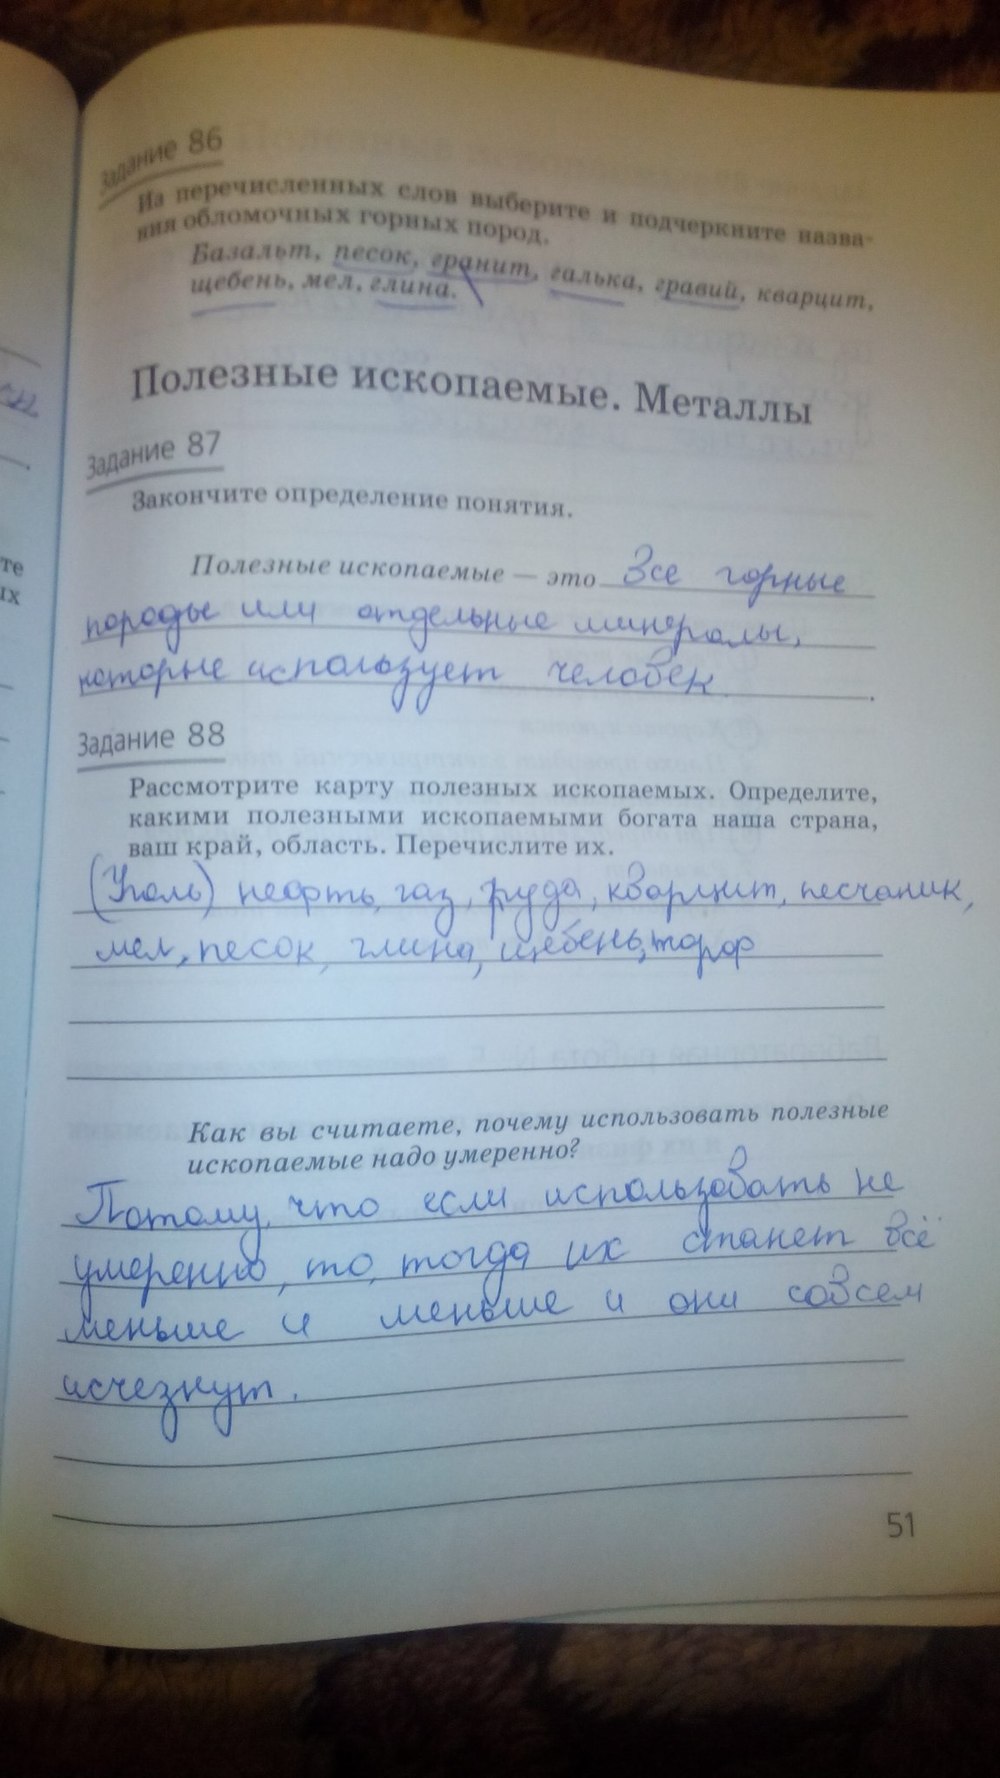 Задание 86
Из перечисленных слов выберите и подчеркните назва-
ния обломочных горных пород.
Базальт, песок, гранит, галька, гравий, кварцит,
щебень, мел, глина.
Полезные ископаемые. Металлы
Задание 87
Закончите определение понятия.
Полезные ископаемые — это Все горные
породы или отдельные минералы,
которые использует человек.
Задание 88
Рассмотрите карту полезных ископаемых. Определите,
какими полезными ископаемыми богата наша страна,
ваш край, область. Перечислите их.
(Уголь) нефть, газ, руда, кварцит, песчаник,
мел, песок, глина, щебень, торф
Как вы считаете, почему использовать полезные
ископаемые надо умеренно?
Потому, что если использовать не
умеренно, то, тогда их станет всё
меньше и меньше и они совсем
исчезнут.
51